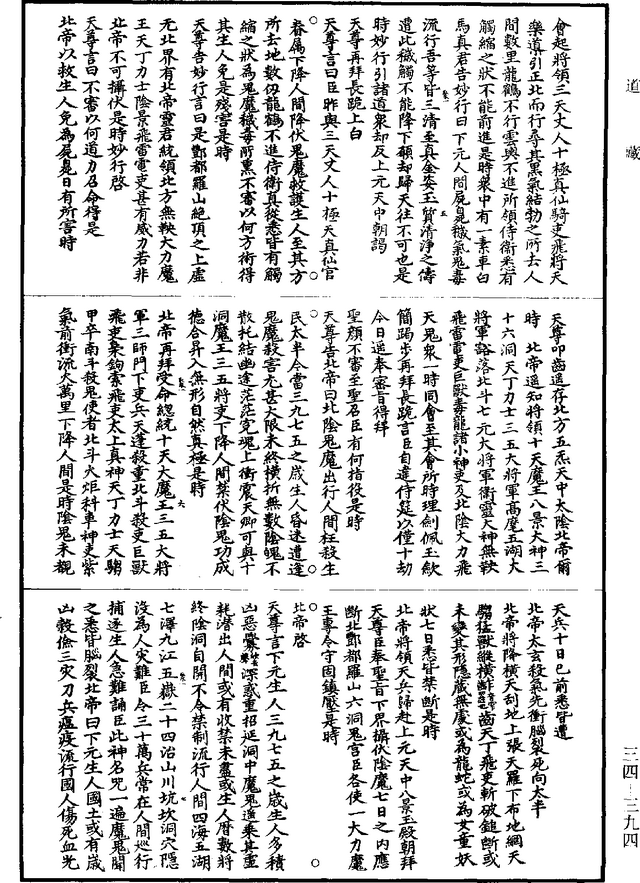 道藏
會起將領三天丈人十極真仙騎吏飛將天
樂導引正北而行尋其黑氣結勃之所去人
間數里龍鶴不行雲輿不進所領侍衛悉有
觸縮之狀不能前進是時衆中有一素車白
馬真君告妙行曰下元人間屍臭穢氣鬼毒
流行吾等皆三清至真金姿玉質清淨之儔
遭此穢觸不能降下願却歸天往不可也是
時妙行引諸道衆却反上元天中朝謁
天尊再拜長跪上白
天尊言曰臣昨與三天丈人十極天真仙官
眷屬下降人間降伏鬼魔救護生人至其方
所去地數仞龍鶴不進侍衛真從悉皆有觸
縮之狀為鬼魔穢毒所熏不審以何方術得
其生人免是殘害是時
天尊告妙行言曰是酆都羅山絕頂之上虛
无北界有北帝靈君統領北方無鞅大力魔
王天丁力士陰景飛雷電吏甚有威力若非
北帝不可攝伏是時妙行啓
天尊言曰不審以何道力召命得是
北帝以救生人免為屍臭日有所害時
天尊叩齒遥存北方五炁天中太陰北帝爾
時北帝遥知將領十天魔王八景大神三
十六洞天丁力士三五大將軍高麾五湖大
將軍豁落北斗七元大將軍衝靈大神無鞅
飛雷電吏巨獸毒龍諸小神吏及北陰大力飛
天鬼衆一時同會至其會所時理劍佩玉歛
簡踢步再拜長跪言臣自違侍筵以僅十劫
今日遥奉審旨得拜
聖顔不審至聖召臣有何指役是時
天尊告北帝曰北陰鬼魔出行人間枉殺生
民太半今當三九七五之歲生人昏迷遭逢
鬼魔殺害尤甚大限未終横折無數陰魄不
散托結幽途茫茫寃魂上衝震天卿可與十
洞魔王三五將吏下降人間禁伏陰鬼功成
德合昇入無形自然真極是時
北帝再拜受命總統十天大魔王三五大將
軍三師門下吏兵天蓬殺童北斗殺吏巨獸
飛吏衆鉤索飛吏太上真神天丁力士天騶
甲卒南斗殺鬼使者北斗火炬科車神吏紫
氣前衝流火萬里下降人間是時陰鬼未覩
天兵十日已前悉皆遭
北帝太玄殺氣先衝腦裂死向太半
北帝將降横天刮地上張天羅下布地網天
騶猛獸縱横齚齒天丁飛吏斬破鎚斷或
未變其形隱藏無處或為龍蛇或為女童妖
狀七日悉皆禁斷是時
北帝將領天兵歸赴上元天中八景玉殿朝拜
天尊臣奉聖旨下界攝伏陰魔七日之内應
斷北酆都羅山六洞鬼官臣各使一大力魔
王專令守固鎮壓是時
北帝啓
天尊言下元生人三九七五之歲生人多積
凶惡釁深或重招延洞中魔鬼遥乘其重
耗潛出人間或有收禁未盡或生人曆數將
終陰洞自開不令禁制流行人間四海五湖
七澤九江五嶽二十四治山川坑坎洞穴隱
没為人災難臣令三十萬兵常在人間巡行
捕逐生人急難誦臣此神名咒一遍魔鬼聞
之悉皆腦裂北帝曰下元生人國土或有歲
凶穀儉三災刀兵瘟疫流行國人傷死血光
三四—三九四